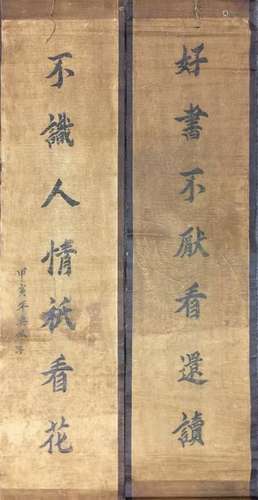 好書不厭看還讀
不識人情祇看花
甲寅